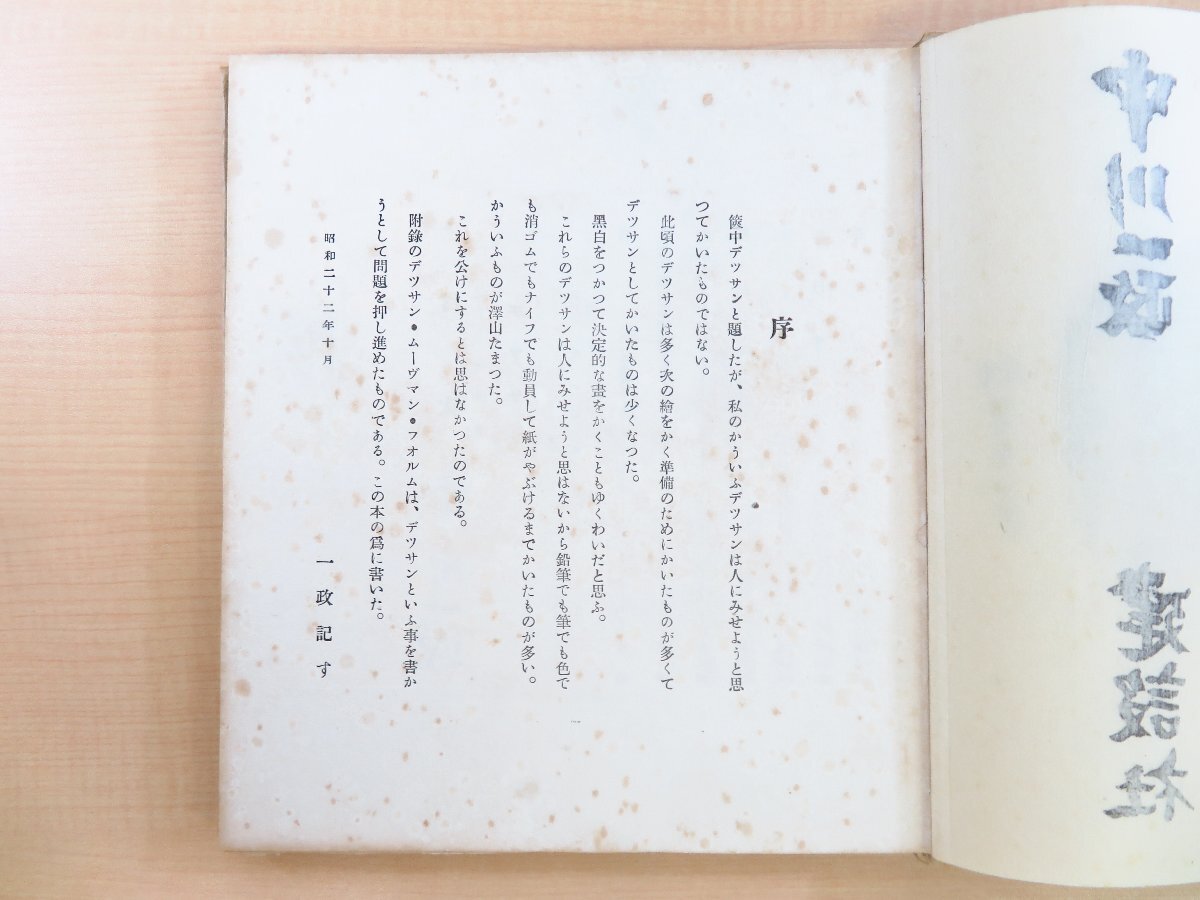 中川一政
建設社
序
篋中デツサンと題したが、私のかういふデツサンは人にみせようと思
つてかいたものではない。
此頃のデツサンは多く次の繪をかく準備のためにかいたものが多くて
デツサンとしてかいたものは少くなつた。
黑白をつかつて決定的な畫をかくこともゆくわいだと思ふ。
これらのデツサンは人にみせようと思はないから鉛筆でも筆でも色で
も消ゴムでもナイフでも動員して紙がやぶけるまでかいたものが多い。
かういふものが澤山たまつた。
これを公けにするとは思はなかつたのである。
附錄のデツサン・ムーヴマン・フオルムは、デツサンといふ事を書か
うとして問題を押し進めたものである。この本の爲に書いた。
昭和二十二年十月
一政記す